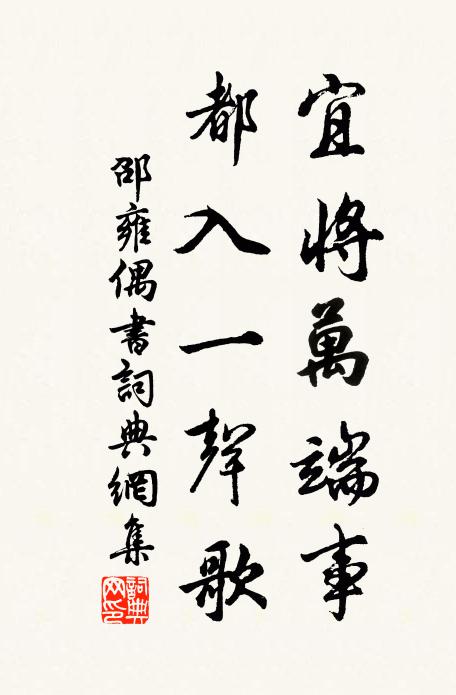 宜將萬端事
都入一聲歌
邵雍偶書詞典網集
詞典网印